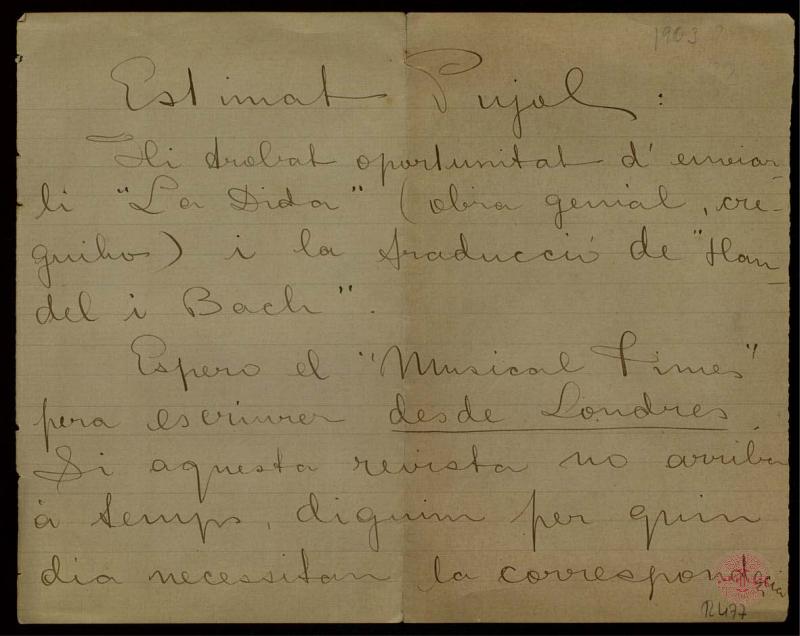 1903
Estimat Pujol:
Hi trobat oportunitat d' enviar-
li "La Dida" (obra genial, cre-
guiho) i la traducció de "Han-
del i Bach".
Espero el "Musical Times"
pera escriurer desde Londres.
Si aquesta revista no arriba
à temps, diguim per quin
dia necessitan la correspondencia
12477